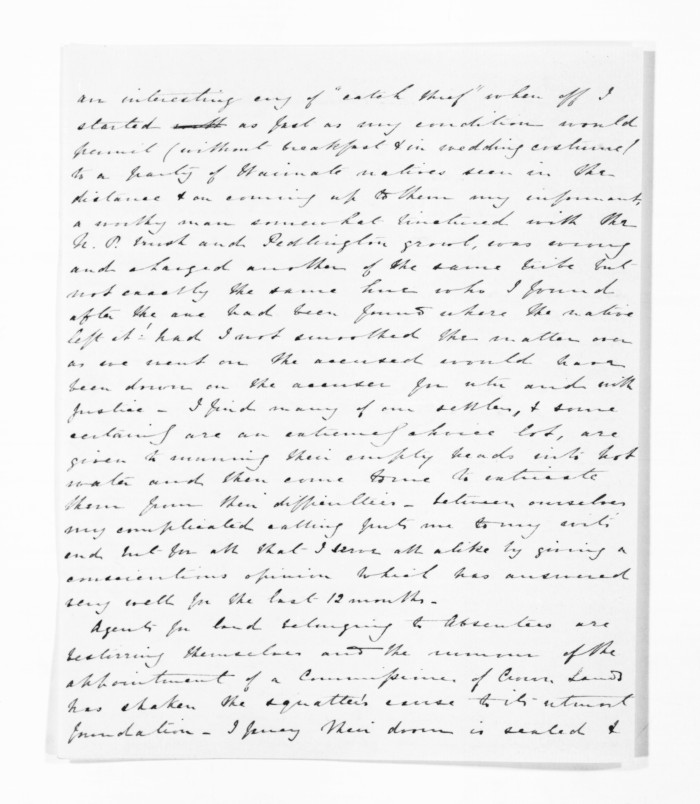 an interesting cry of "catch thief" when off I
started as fast as my condition would
permit (without breakfast & in wedding costume)
to a party of Waimate natives seen in the
distance & on coming up to them my informant,
a worthy man somewhat tinctured with the
N. P. and Pedlington growl, was wrong
and charged another of the same tribe but
not exactly the same hue who I found
after the axe had been found where the native
left it! had I not smoothed the matter over
as we went on the accused would have
been down on the accuser for utu and with
justice - I find many of our settlers, & some
certainly are an extremely choice lot, are
given to running their empty heads into hot
water and then come to me to extricate
them from their difficulties - between ourselves
my complicated calling puts me to my wits
end but for all that I serve all alike by giving a
conscientious opinion which has answered
very well for the last 12 months -
Agents for land belonging to Absentees are
bestirring themselves and the rumour of the
appointment of a Commissioner of Crown Lands
has shaken the squatters cause to its utmost
foundation - I fancy their doom is sealed &